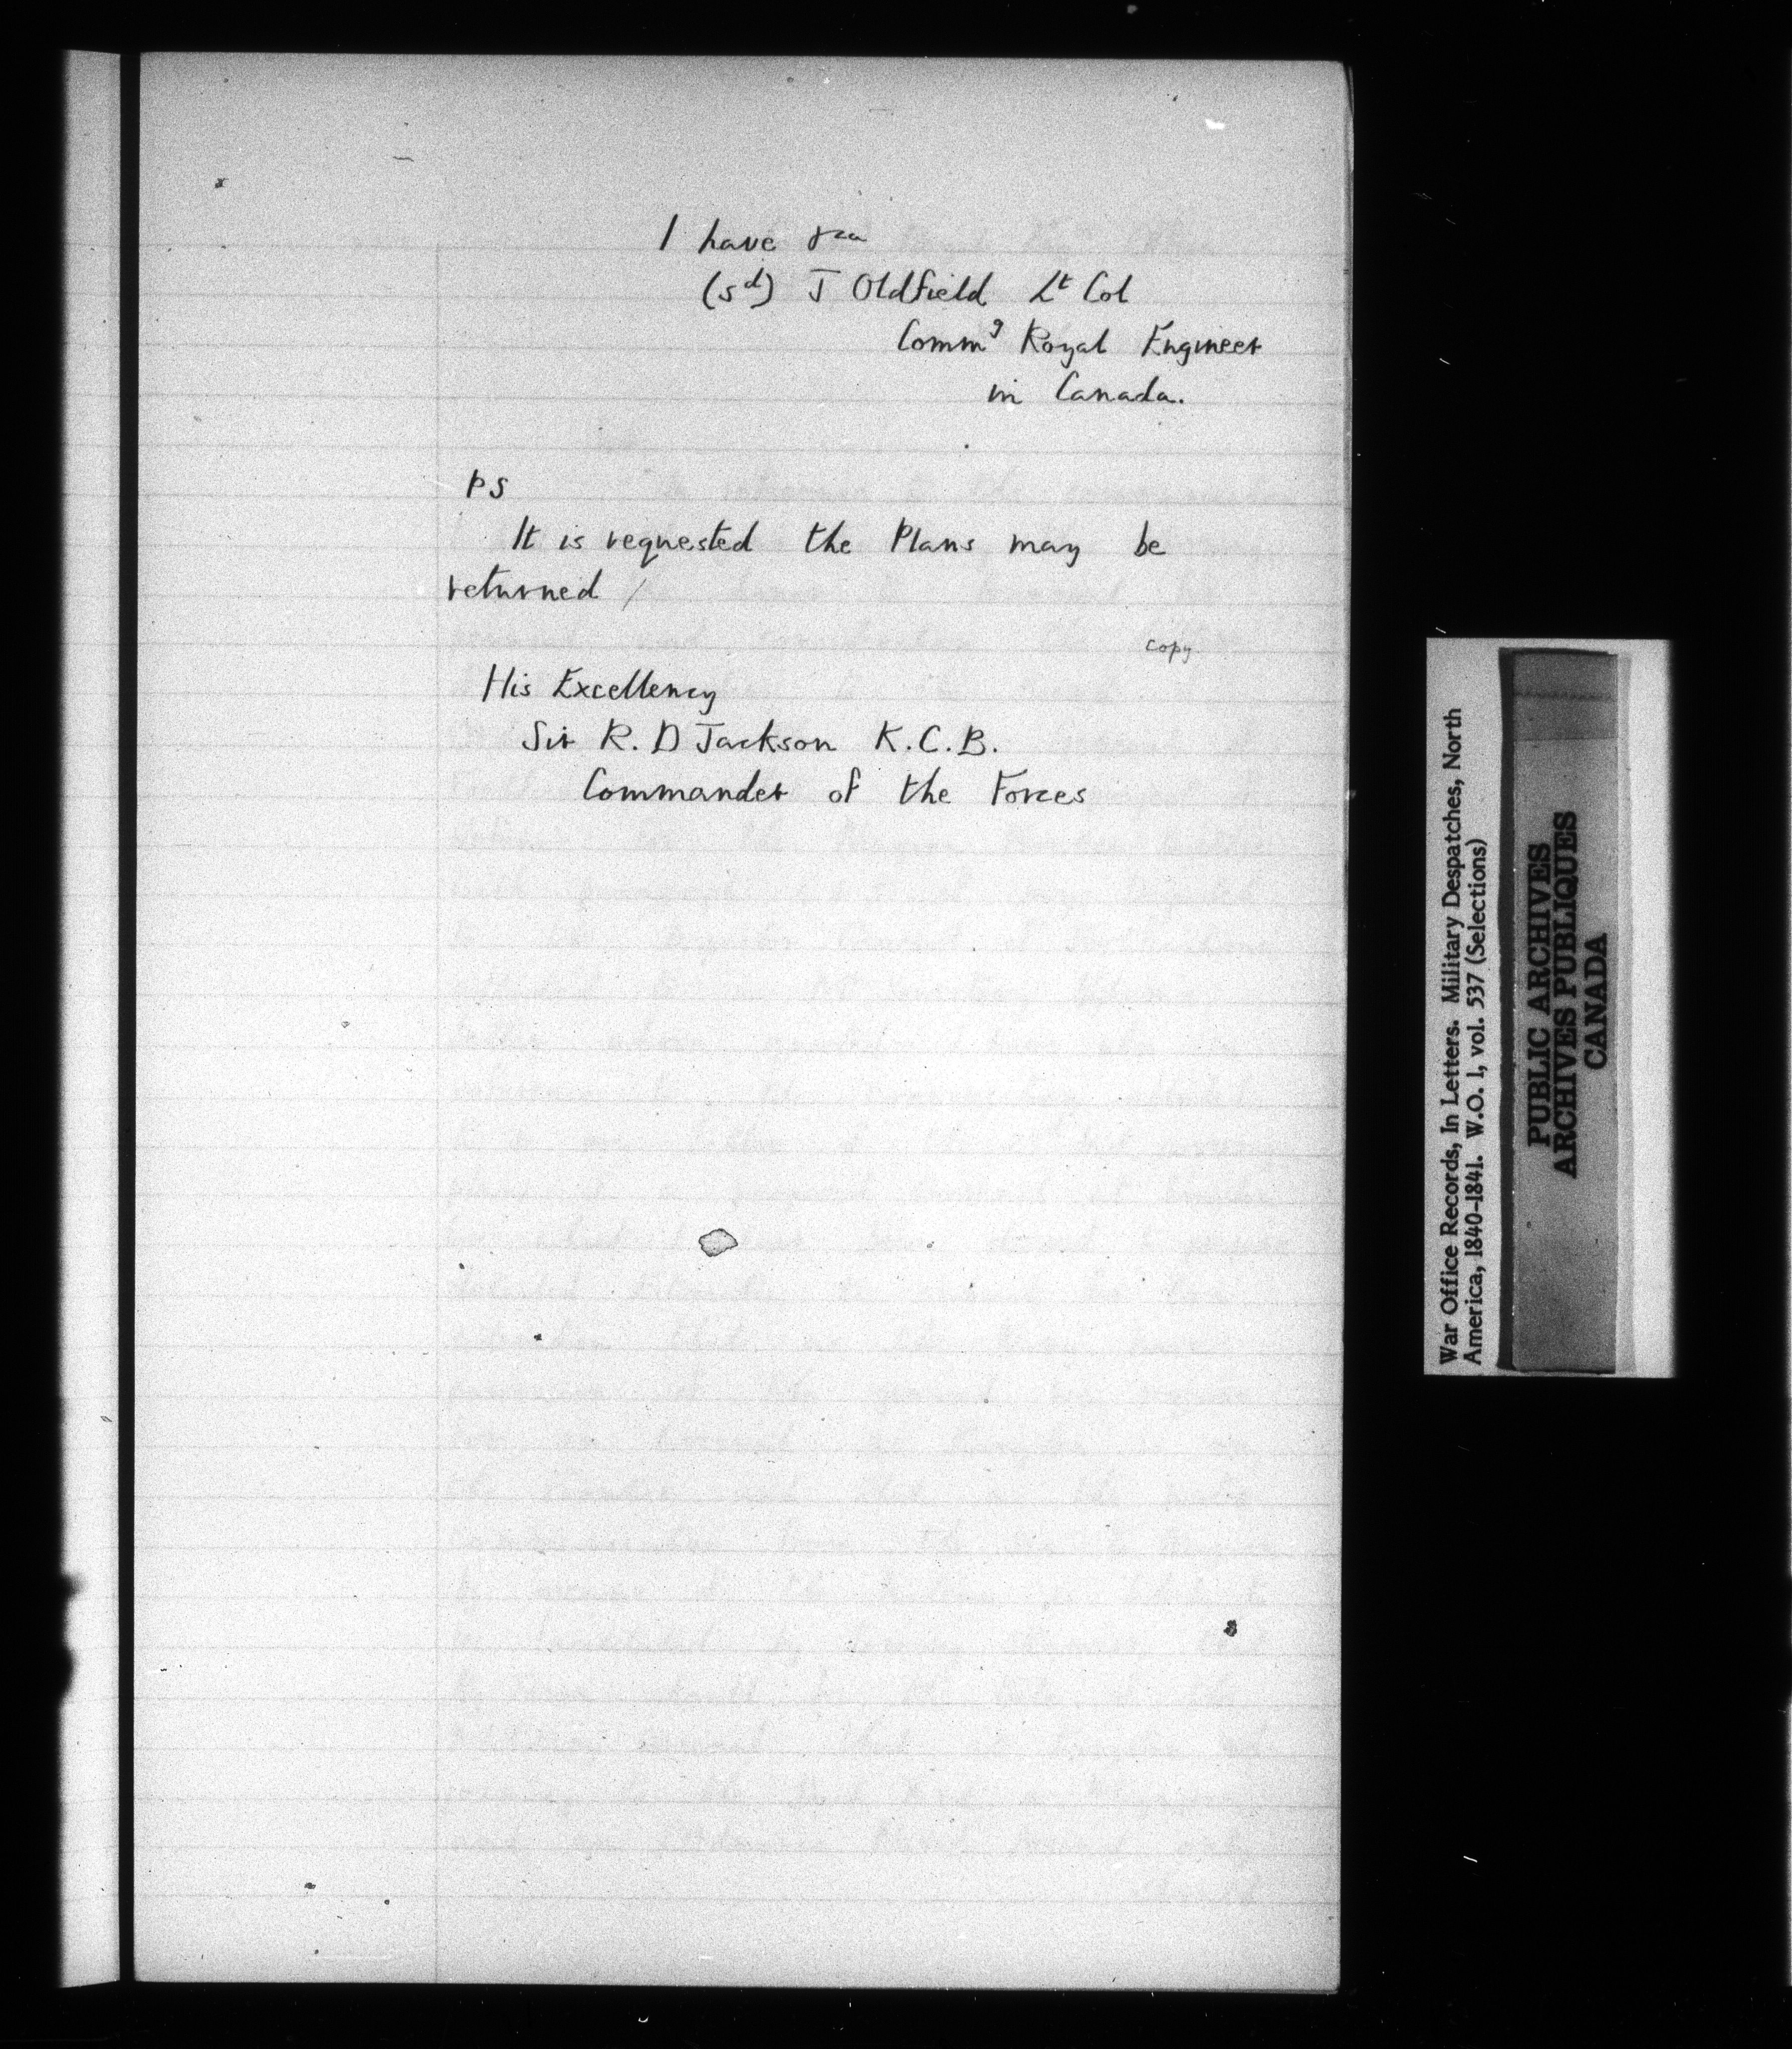 I have &ca
(sd) J Oldfield Lt Col
Commg Royal Engineer
in Canada.
PS
It is requested the Plans may be
returned /
copy
His Excellency
Sir R. D Jackson K.C.B.
Commander of the Forces
War Office Records, In Letters. Military Despatches, North
America, 1840-1841. W.O. 1, vol. 537 (Selections)
PUBLIC ARCHIVES
ARCHIVES PUBLIQUES
CANADA